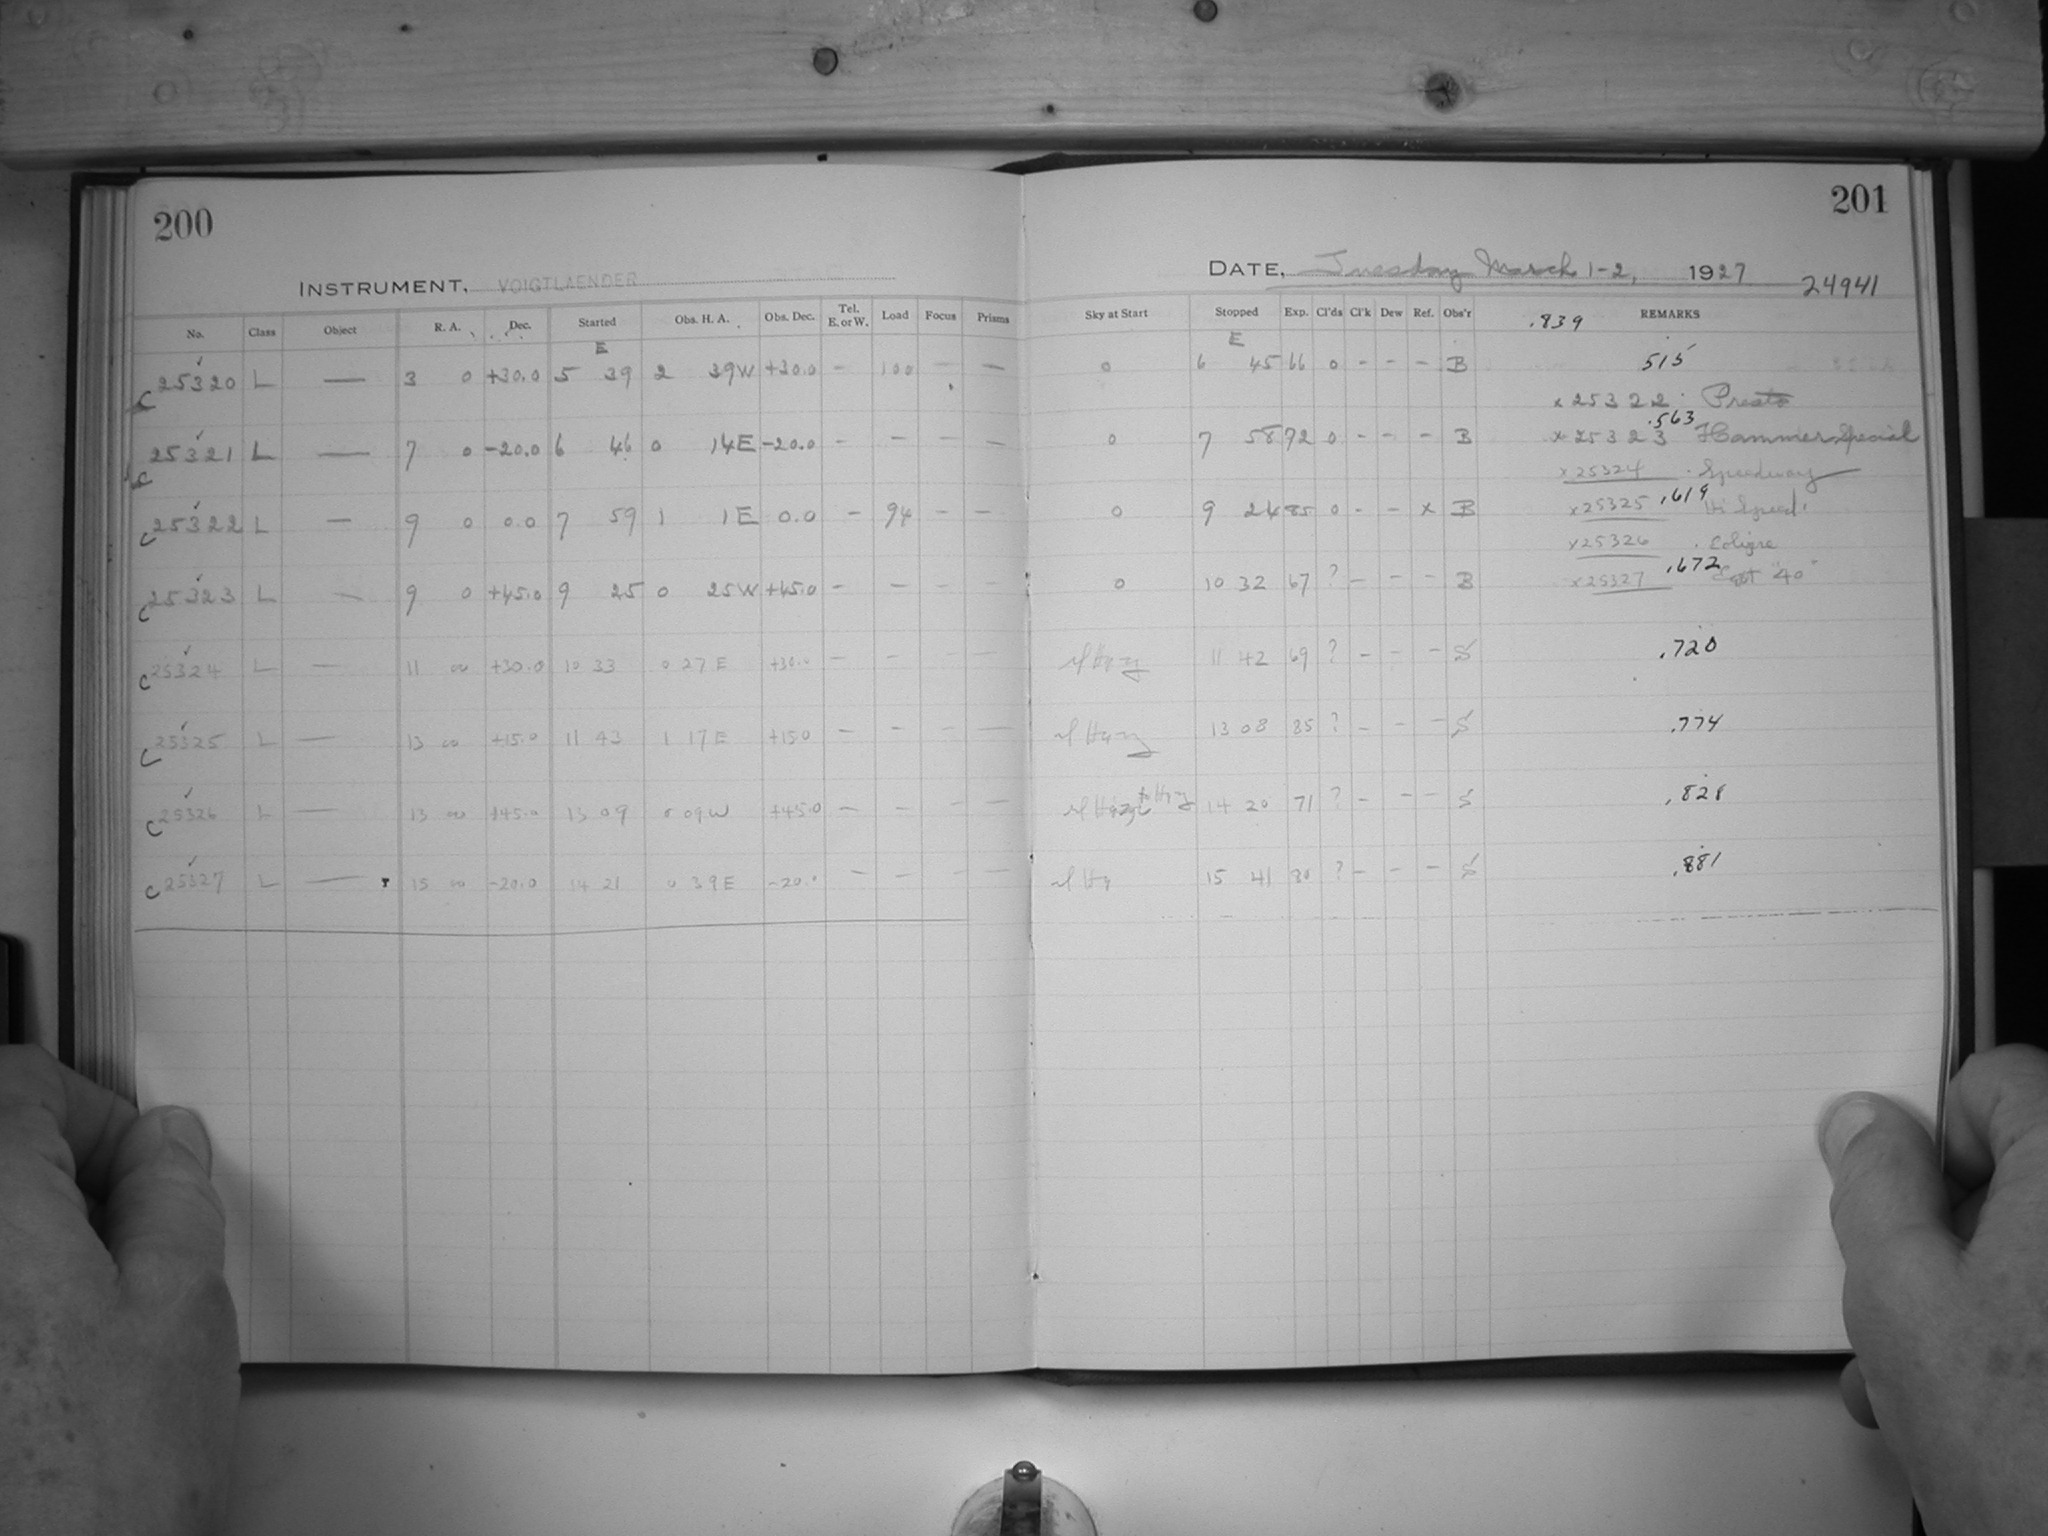 200
201
INSTRUMENT, VOIGTLAENDER
DATE, Tuesday March 1-2, 1927 24941
No. Class Object R. A. Dec. Started Obs. H. A. Obs. Dec. Tel. E. or W. Load Focus Prisms Sky at Start Stopped Exp. Cl'ds Cl'k Dew Ref. Obs'r .839 REMARKS
E E
C 25320 L — 3 0 +30.0 5 39 2 39W +30.0 - 100 — — 0 6 45 66 0 - - - B 515
x 25322 Presto
.563
C 25321 L — 7 0 -20.0 6 46 0 14E -20.0 - - - - 0 7 58 72 0 - - - B x 25323 Hammer Special
x 25324 Speedway
C 25322 L — 9 0 0.0 7 59 1 1E 0.0 - 94 - - 0 9 24 85 0 - - x B x 25325 .619 Hi Speed
x 25326 Eclipse
C 25323 L - 9 0 +45.0 9 25 0 25W +45.0 - - - - 0 10 32 67 ? - - - B x 25327 .672 "40"
C 25324 L — 11 00 +30.0 10 33 0 27E +30.0 - - - - sl Hazy 11 42 69 ? - - - S .720
C 25325 L — 13 00 +15.0 11 43 1 17E +15.0 - - - - sl Hazy 13 08 85 ? - - - S .774
C 25326 L — 13 00 +45.0 13 09 0 09W +45.0 - - - - sl Hazy to Hzy 14 20 71 ? - - - S .828
C 25327 L — 15 00 -20.0 14 21 0 39E -20.0 - - - - sl Hz 15 41 80 ? - - - S .881